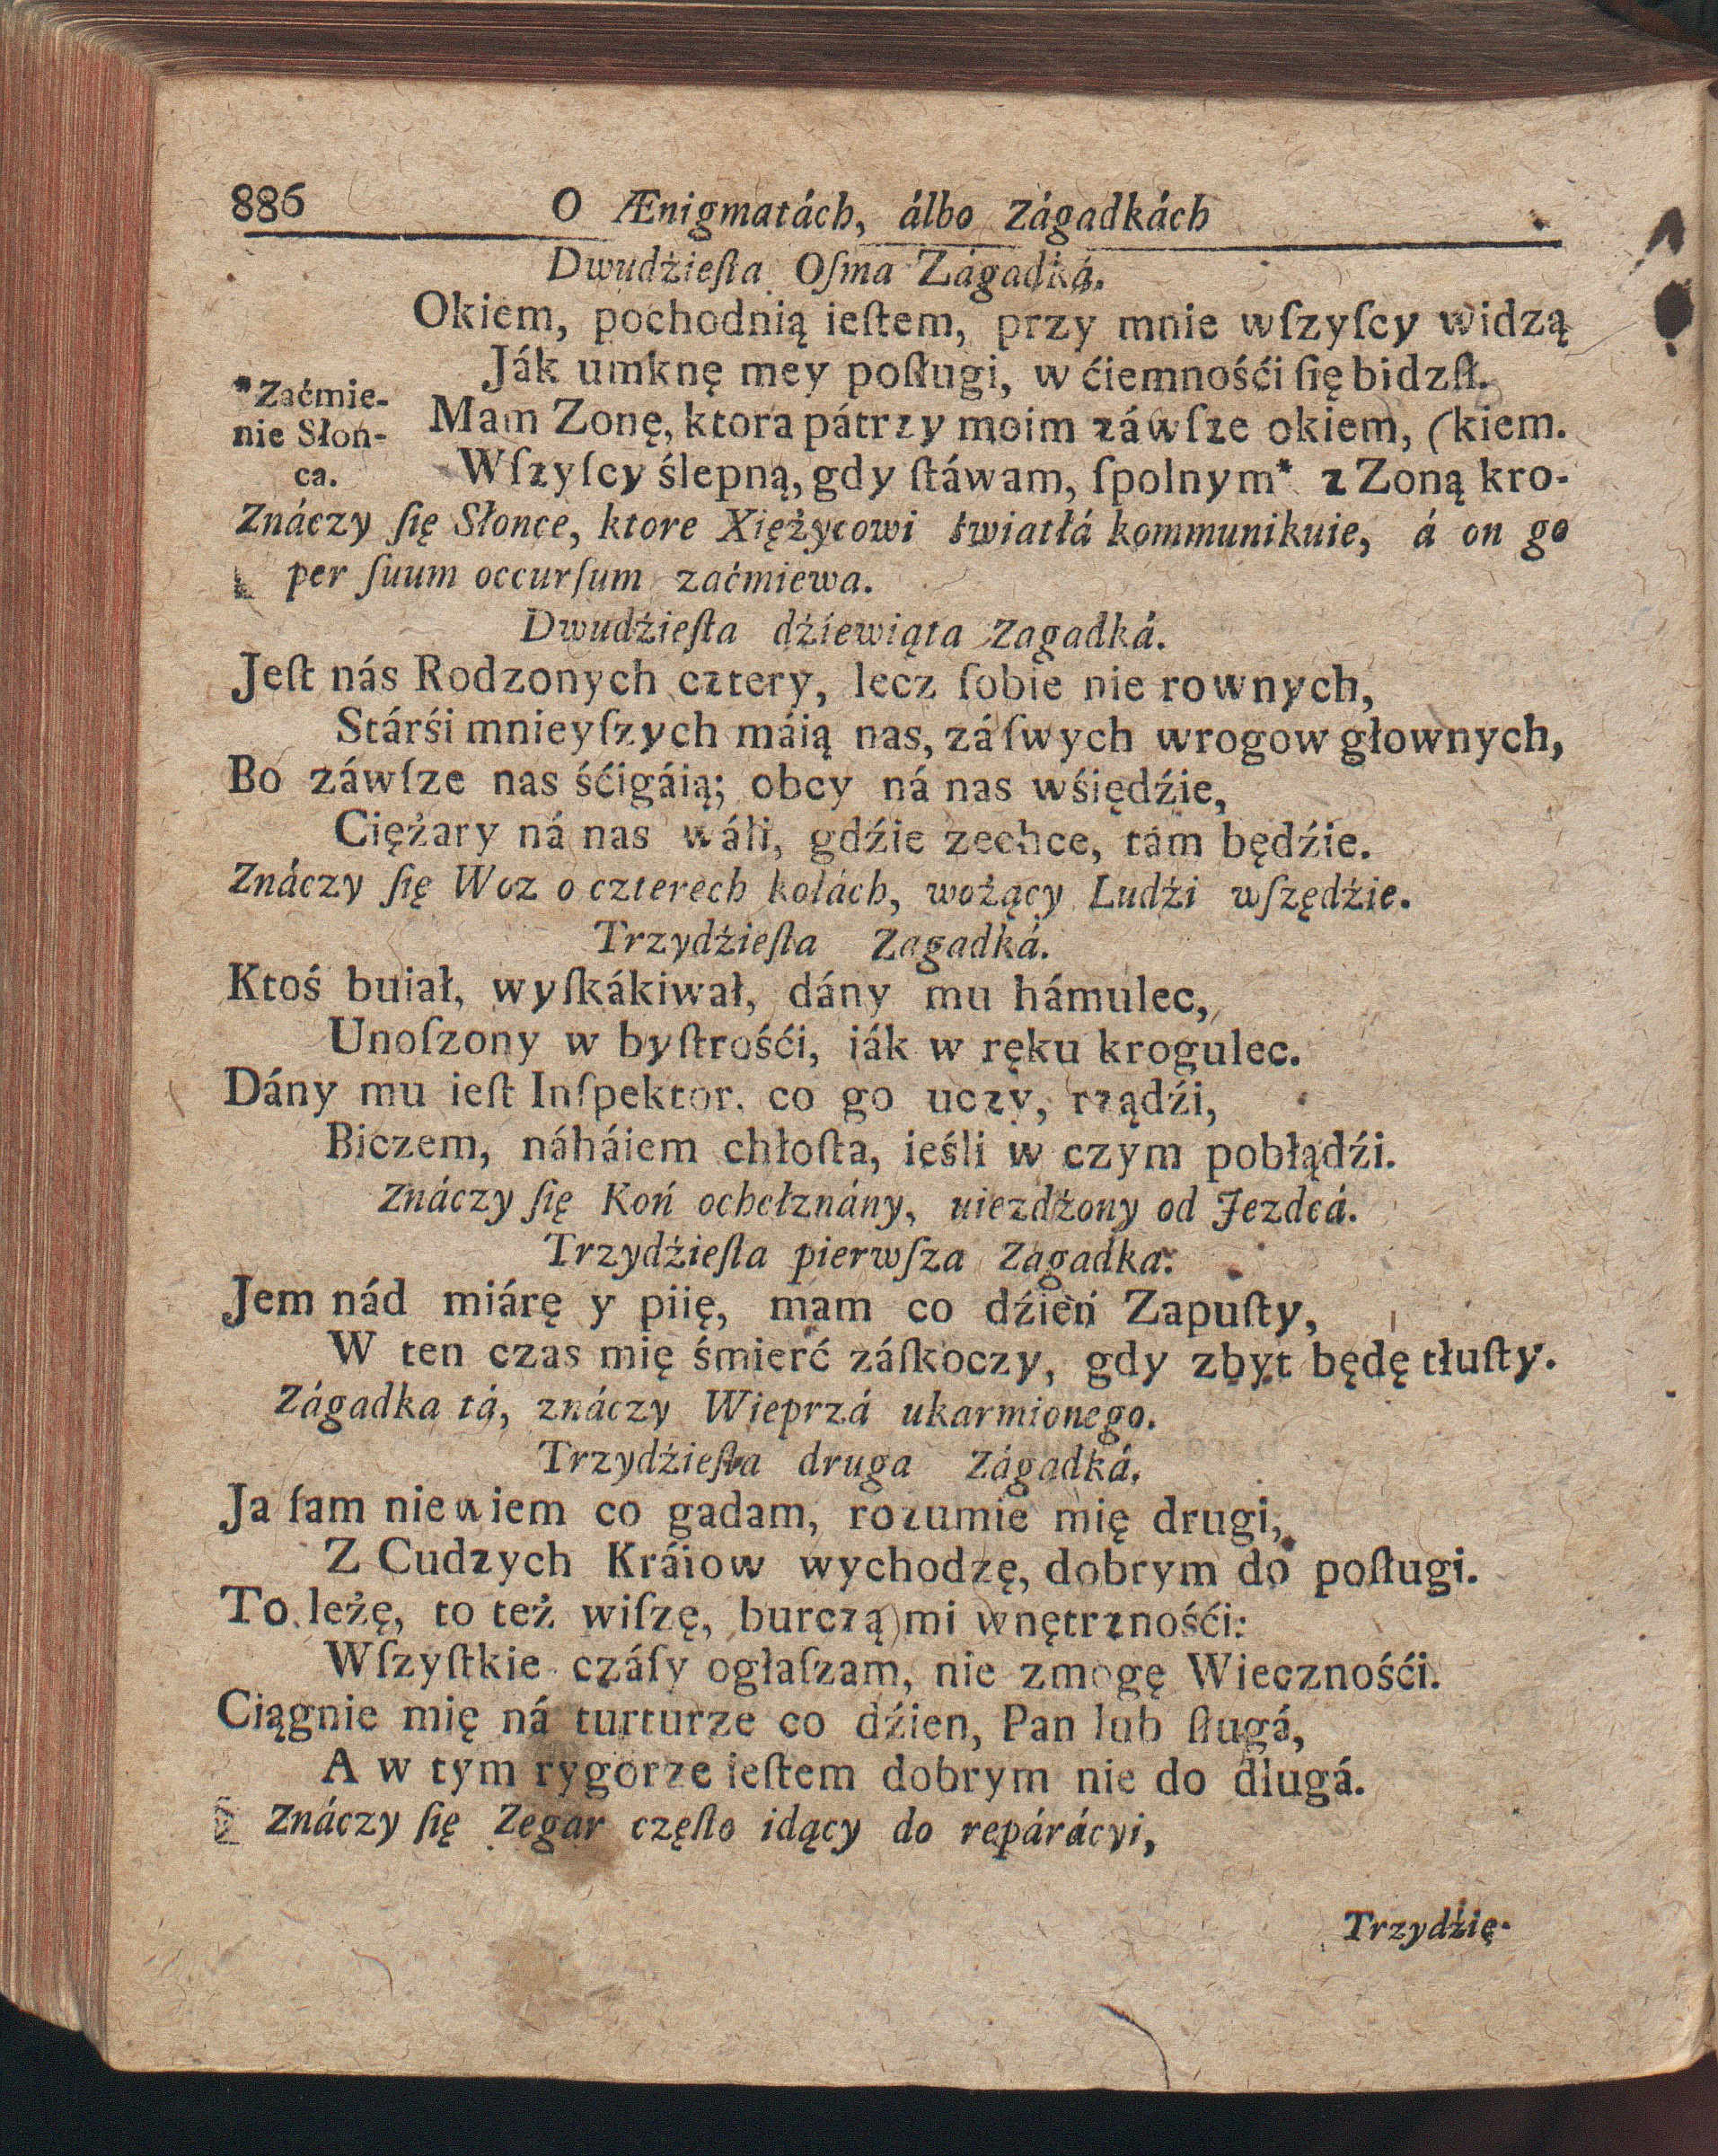 886 O Ænigmatách, álbo Zágadkách
Dwudżieſta Oſma Zágadká.
Okiem, pochodnią ieſtem, przy mnie wſzyſcy widzą
Ják umknę mey poſługi, w ćiemnośći ſię bidzą.
*Zaćmie-
nie Słoń-
ca.
Mam Zonę, ktora pátrzy moim záwſze okiem, (kiem.
Wſzyſcy ślepną, gdy ſtáwam, ſpolnym* z Zoną kro-
Znáczy ſię Słonce, ktore Xiężycowi światłá kommunikuie, á on go
per ſuum occurſum zaćmiewa.
Dwudżieſta dżiewiąta Zagadká.
Jeſt nás Rodzonych cztery, lecz ſobie nie rownych,
Stárśi mnieyſzych máią nas, zá ſwych wrogow głownych,
Bo záwſze nas śćigáią; obcy ná nas wśiędźie,
Ciężary ná nas wáli, gdźie zechce, tám będźie.
Znáczy ſię Woz o czterech kołách, wożący Ludżi wſzędżie.
Trzydżieſta Zagadká.
Ktoś buiał, wyſkákiwał, dány mu hámulec,
Unoſzony w byſtrośći, iák w ręku krogulec.
Dány mu ieſt Inſpektor, co go uczy, rządźi,
Biczem, náháiem chłoſta, ieśli w czym pobłądźi.
Znáczy ſię Koń ochełznány, uiezdżony od Jezdcá.
Trzydżieſta pierwſza Zagadka.
Jem nád miárę y piię, mam co dźień Zapuſty,
W ten czas mię śmierć záſkoczy, gdy zbyt będę tłuſty.
Zágadka tá, znáczy Wieprzá ukarmionego.
Trzydżieſta druga Zágadká.
Ja ſam niewiem co gadam, rozumie mię drugi,
Z Cudzych Kráiow wychodzę, dobrym do poſługi.
To leżę, to też wiſzę, burczą mi wnętrznośći:
Wſzyſtkie czáſy ogłaſzam, nie zmogę Wiecznośći.
Ciągnie mię ná turturze co dźien, Pan lub ſługá,
A w tym rygorze ieſtem dobrym nie do długá.
Znáczy ſię Zegar częſto idący do repárácyi,
Trzydźię-